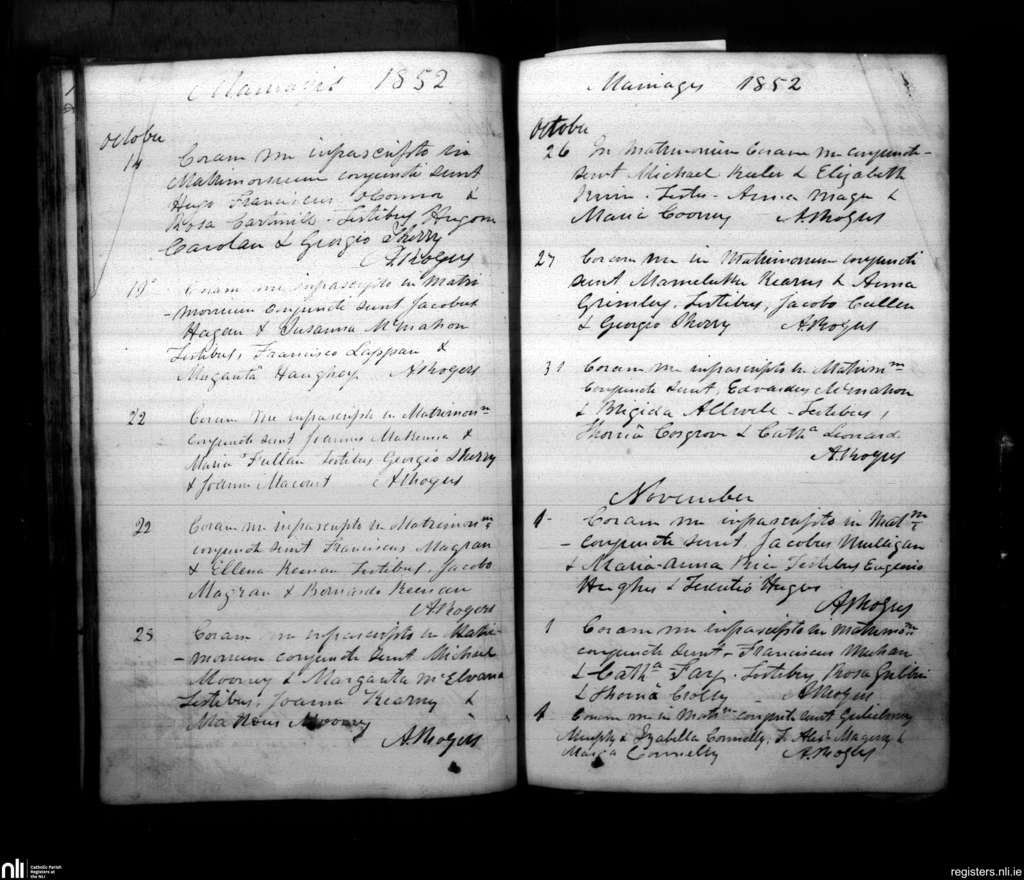 Marriages 1852
October
14 Coram me infrascripto in
Matrimonium conjuncti sunt
Franciscus O Connor &
Rosa Testibus Hugone
Carolan & Georgio Sherry
ARogers
19 Coram me infrascripto in Matri
-monium conjuncti sunt Jacobus
Hagan & Susanna McMahon
Testibus, Francisco Lappan &
Margarita Haughey ARogers
22 Coram me infrascripto in Matrimonm
conjuncti sunt Joannes &
Maria Fullan Testibus Georgio Sherry
& Joanne Macourt ARogers
22 Coram me infrascripto in Matrimonm
conjuncti sunt Franciscus Magran
& Ellena Keenan Testibus, Jacobo
Magran & Bernardo Keenan
ARogers
25 Coram me infrascripto in Matri
-monium conjuncti sunt Michael
Mooney & Margarita McElvana
Testibus, Joanna Kearny &
Mooney
ARogers
Marriages 1852
October
26 In Matrimonium Coram me conjuncti
sunt Michael & Elizabeth
Testes - Anna Magee &
Maria Cooney ARogers
27 Coram me in Matrimonium conjuncti
sunt Kearns & Anna
Grimley, Testibus, Jacobo Cullen
& Georgio Sherry ARogers
31 Coram me infrascripto in Matrimm
conjuncti sunt, Edvardus McMahon
& Brigida - Testibus,
Thoma Cosgrove & Catha Leonard
ARogers
November
1 Coram me infrascripto in Matm
- conjuncti sunt Jacobus Mulligan
& Maria-Anna Rice Testibus Eugenio
Hughes & Terentio Hughes
ARogers
1 Coram me infrascripto in Matrimonm
conjuncti sunt - Franciscus Mechan
& Catha Fay. Testibus, Rosa
& Thoma Crolly - ARogers
4 Coram me in Matm conjuncti sunt Gulielmus
Murphy & Isabella Connelly, T. &
Maria Connelly ARogers
nli
Catholic Parish
Registers at
the NLI
registers.nli.ie